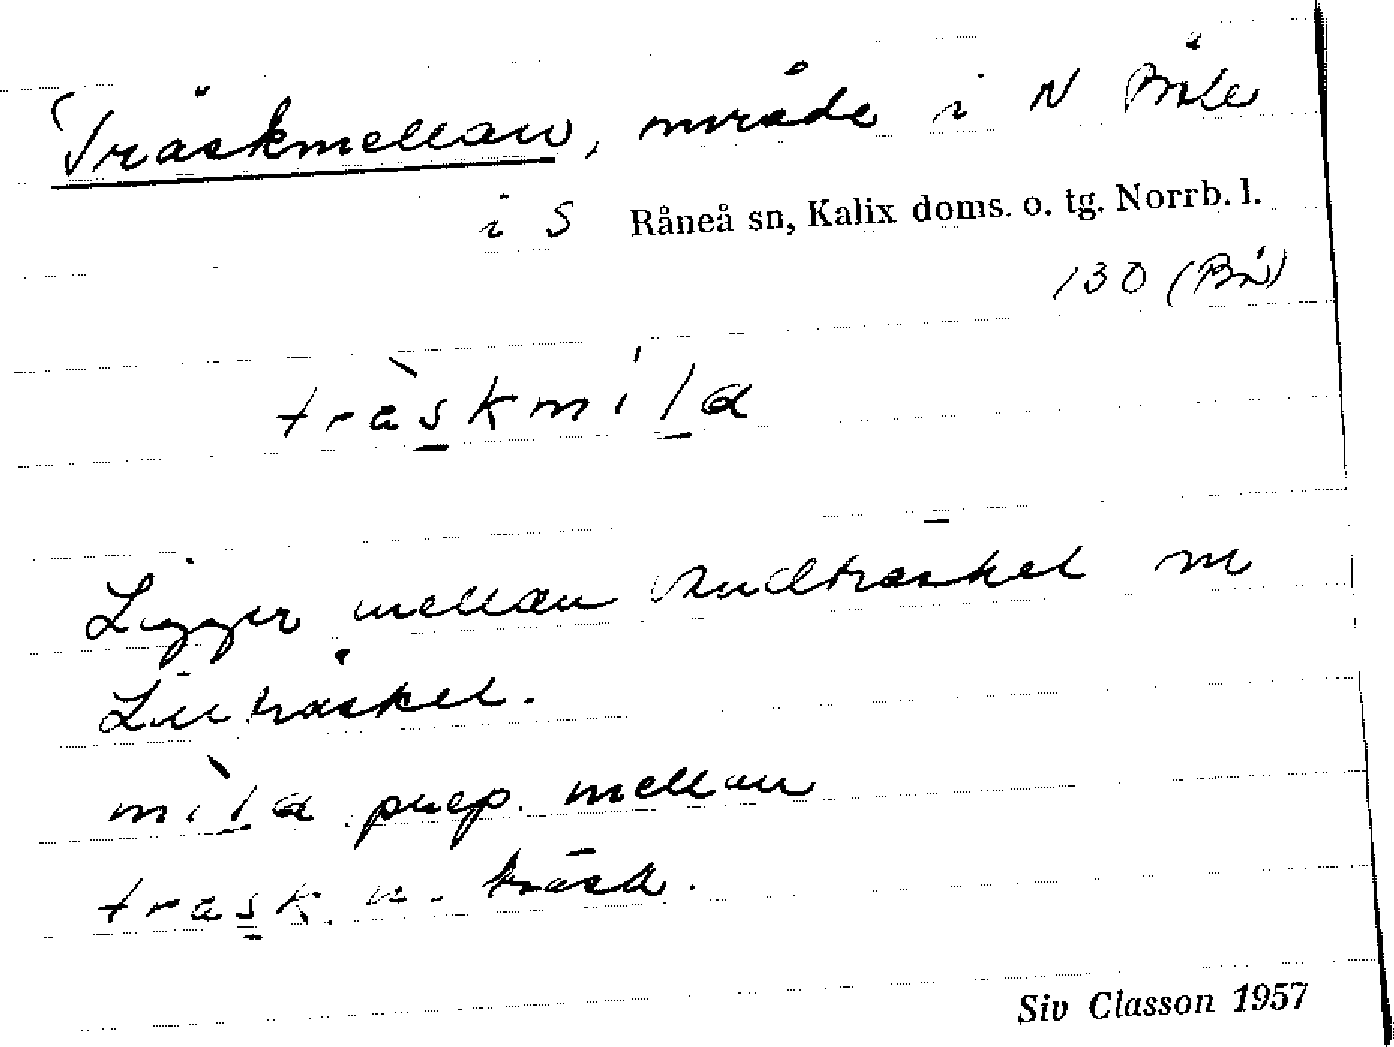 Träskmellan, område i N Böle
i S Råneå sn, Kalix doms. o. tg. Norrb. l.
130 (Bä)
tràs̲kmíl̲a
Ligger mellan Rudträsket m
Lilträsket.
mìl̲a prep. mellan
tras̲k n. träsk.
Siv Classon 1957